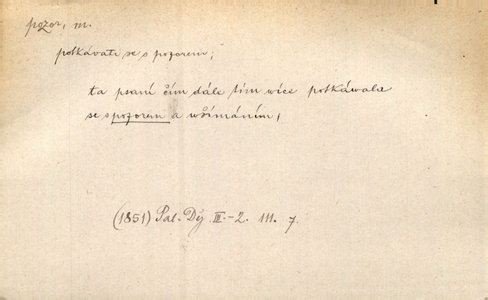 pozor, m.
potkávati se s pozorem;
ta psaní čím dále tím více potkáwala
se s pozorem a wšímáním;
(1851) Pal. Děj. III.-2. 111. 7.